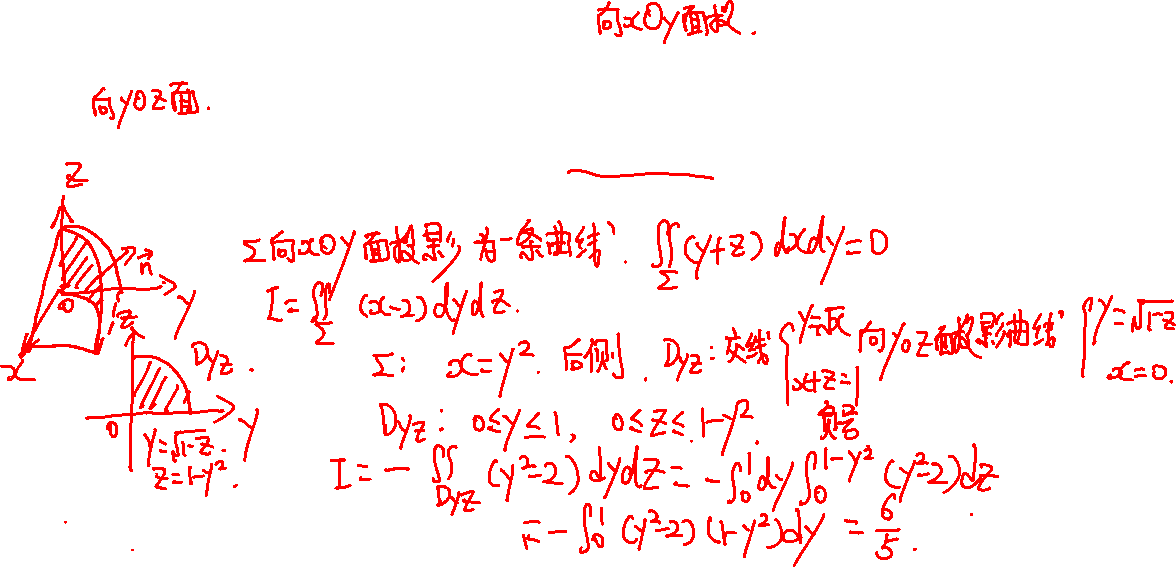 向xOy面投.
向yOz面.
z
n⃗
0
y
x
z
Dyz.
0
y
y=√1-z.
z=1-y².
Σ向xOy面投影为一条曲线. ∬Σ(y+z)dxdy=0
I=∬Σ (x-2)dydz.
Σ: x=y². 后侧. Dyz: 交线{y=√x x+z=1 向yoz面投影曲线{y=√1-z x=0.
Dyz: 0≤y≤1, 0≤z≤1-y². 负号
I=-∬Dyz (y²-2)dydz=-∫₀¹dy∫₀^(1-y²) (y²-2)dz
=-∫₀¹(y²-2)(1-y²)dy=6/5.